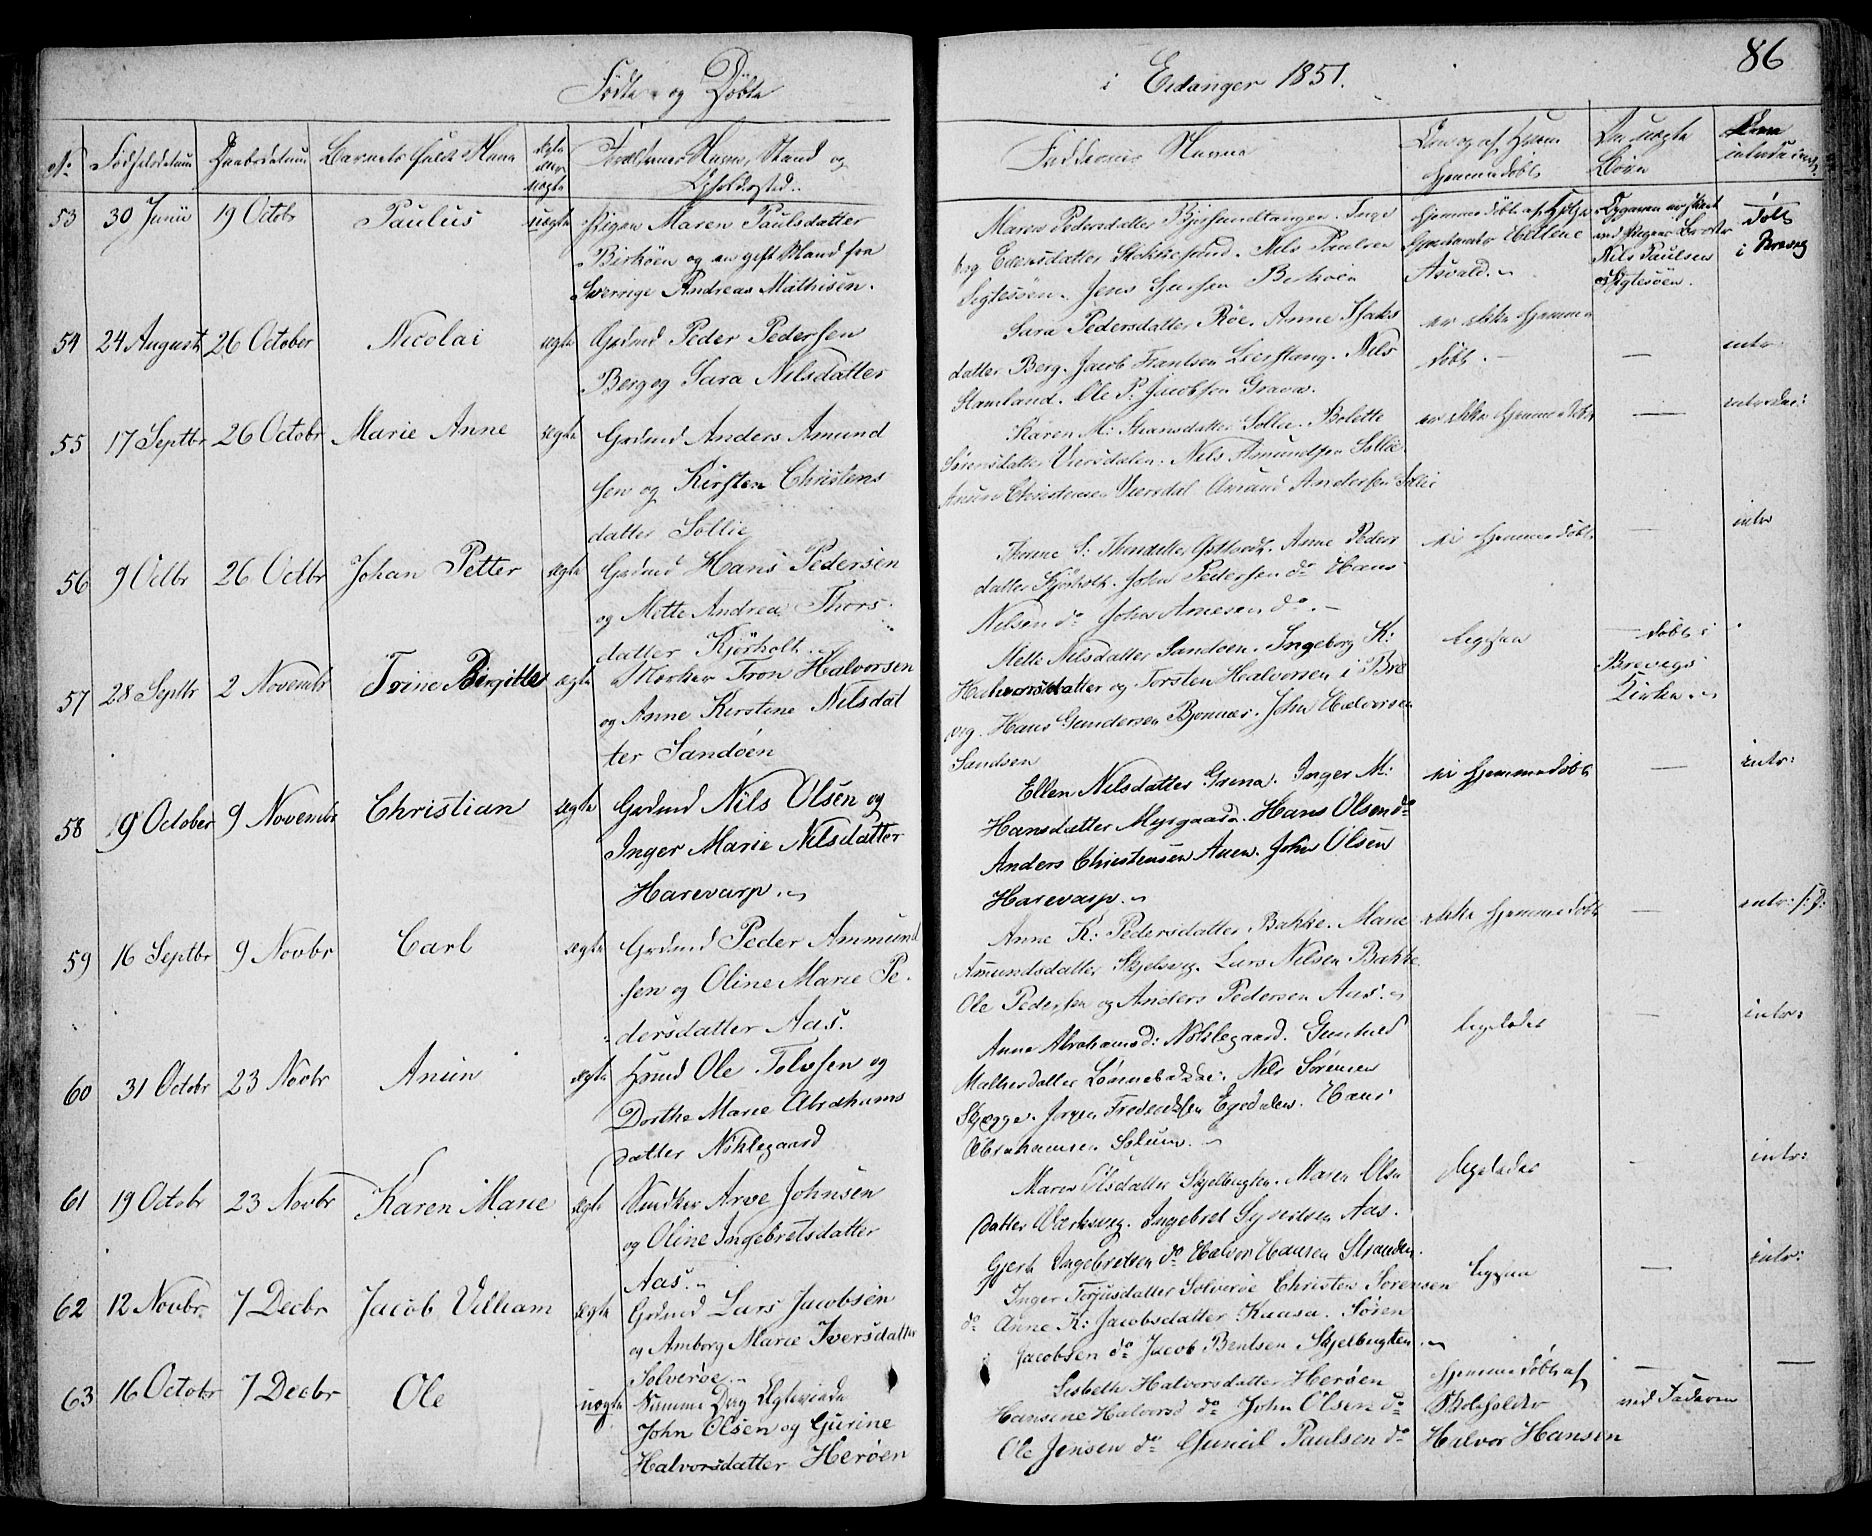 86
Födte og Döbte
i Eidanger 1851.
No Födselsdatum Daabsdatum Barnets fulde Navn ægte eller uægte Forældrenes Navn, Stand og Opholdssted.
Faddernes Navne Om og af hvem hjemmedöbt De uægte Börn
53 30 Junii 19 Octbr Paulus uægte Pigen Maren Paulsdatter
Birköen og en gift Mand fra
Sverrige Andreas Mathisen.
Maren Pedersdatter Inge
borg Nils Paulsen
Sigtesöen. Jens Birköen
hjemmedöbt af
Hellene
Asvald.
Nils Paulsen
Sigtesöen.
döbt
i Brevig
54 24 August 26 October Nicolai ægte Grdmd Peder Pedersen
Berg og Sara Nilsdatter
Sara Pedersdatter Röe. Anne Isaks
datter Berg. Jacob Frantsen Lierstang. Nils
Stamland. Ole P. Jacobsen Grava.
er ikke hjemme
döbt. —
—
intr:
55 17 Septbr 26 Octobr Marie Anne ægte Grdmd Anders Amund
sen og Kirsten Christens
datter Sollie
Karen M: Hansdatter Sollie. Bolette
Sörensdatter Viersdalen. Nils Amundsen Sollie
Christensen Viersdal Amund Andersen Solie
er ikke hjemmedöbt
—
introdu:
56 9 Octbr 26 Octbr Johan Petter ægte Grdmd Hans Pedersen
og Mette Andrea Thors
datter Kjörholt.
Anne Peders
datter Kjörholt. John Pedersen do Hans
Nilsen do John Arnesen do. —
ei hjemmedöbt
—
intr
57 28 Septbr 2 Novembr Trine Birgitte ægte Tron Halvorsen
og Anne Kirstine Nilsdat
ter Sandöen
Mette Nilsdatter Sandöen. Ingeborg K:
Halvorsdatter og Torsten Halvorsen i Bre
vig. Hans Gundersen Bjonnes. John Halvorsen
Sandöen
ligesaa
— döbt i
Brevigs
Kirke.
58 9 October 9 Novembr Christian ægte Grdmd Nils Olsen og
Inger Marie Nilsdatter
Harevarp.
Ellen Nilsdatter Grena. Inger M:
Hansdatter Myrgaard. Hans Olsen do
Anders Christensen Auen. John Olsen
Harevarp.
ei hjemmedöbt
—
intr:
59 16 Septbr 9 Novbr Carl ægte Grdmd Peder Ammund
sen og Oline Marie Pe-
dersdatter Aas.
Anne K: Pedersdatter Bakke. Marie
Amundsdatter Skjelsvig. Lars Nilsen Bakke
Ole Pedersen og Anders Pedersen Aas.
ikke hjemmedöbt
—
intr:
60 31 Octbr 23 Novbr Anun ægte Hmd Ole Tolvsen og
Dorthe Marie Abrahams
datter Nöklegaard
Anne Abrahamsd: Nöklegaard. Gunhild
Mathisdatter Lönnebakke. Nils Sörensen
Skjegge. Jörgen Fredriksen Egedalen. Hans
Abrahamsen Solum.
ligeledes
—
intr:
61 19 Octbr 23 Novbr Karen Marie ægte Arve Johnsen
og Oline Ingebretsdatter
Aas.
Maren Olsdatter Skjelbugten. Maren Ols
datter Værksvig. Ingebret Syvertsen Aas.
Gjert Ingebretsen do Halvor Hansen Stranden.
ligeledes
—
intr:
62 12 Novbr 7 Decbr Jacob Villiam ægte Grdmd Lars Jacobsen
og Amborg Marie Iversdatter
Solveröe.
Inger Torjusdatter Solveröe Christen Sörensen
do Anne K: Jacobsdatter Kaasa. Sören
Jacobsen do Jacob Bentsen Skjelbugten.
ligesaa
—
intr:
63 16 Octobr 7 Decbr Ole uægte
John Olsen og Gurine
Halvorsdatter Heröen
Lisbeth Halvorsdatter Heröen
Hansine Halvorsd do John Olsen do
Ole Jensen do Gunild Paulsen do
hjemmedöbt af
Skoleholder
Halvor Hansen
—
ved Faderen
—